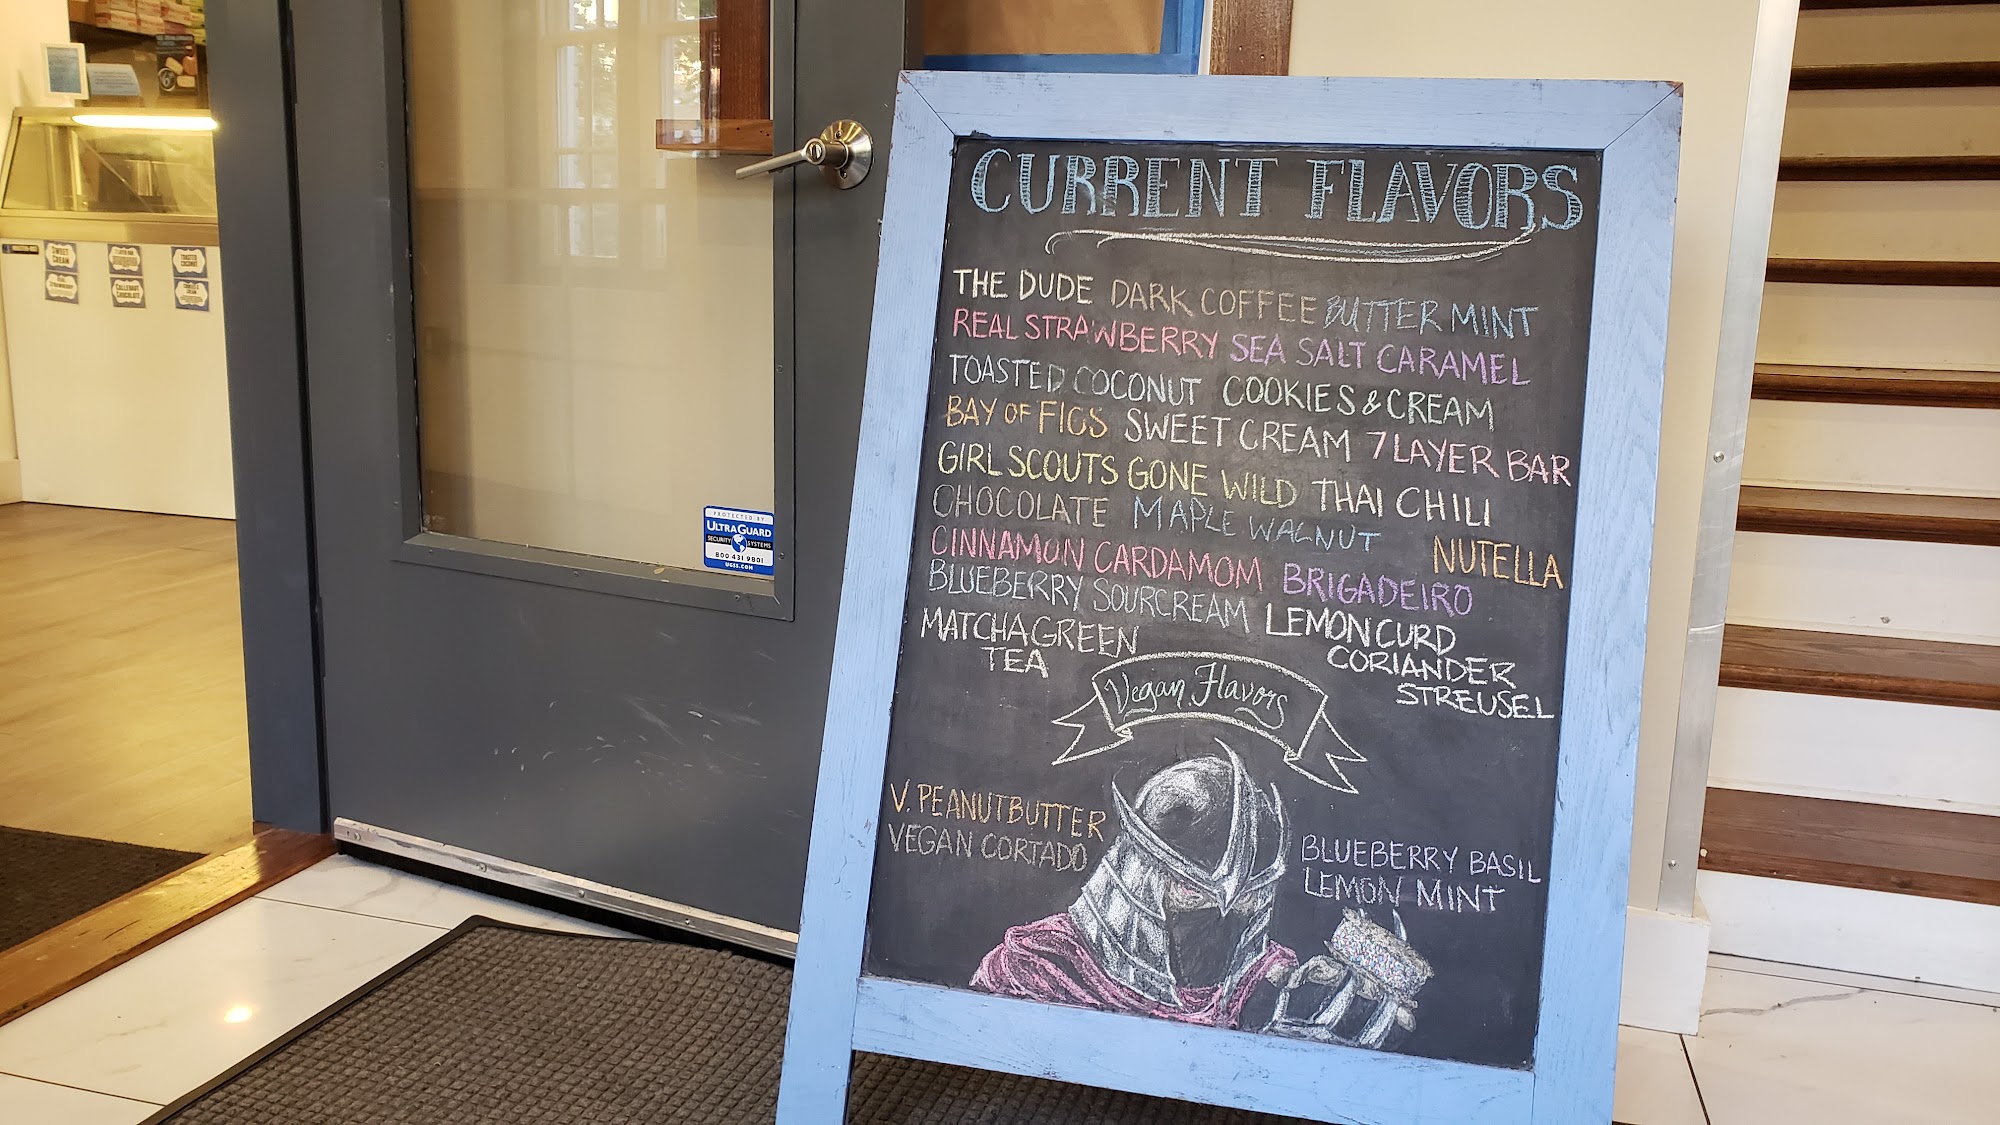 CURRENT FLAVORS
THE DUDE DARK COFFEE BUTTER MINT
REAL STRAWBERRY SEA SALT CARAMEL
TOASTED COCONUT COOKIES & CREAM
BAY OF FIGS SWEET CREAM 7 LAYER BAR
GIRL SCOUTS GONE WILD THAI CHILI
CHOCOLATE MAPLE WALNUT NUTELLA
CINNAMON CARDAMOM BRIGADEIRO
BLUEBERRY SOURCREAM LEMON CURD
MATCHA GREEN CORIANDER
TEA STREUSEL
Vegan Flavors
V. PEANUTBUTTER BLUEBERRY BASIL
VEGAN CORTADO LEMON MINT
PROTECTED BY
ULTRAGUARD
SECURITY SYSTEMS
800 431 9801
UGSS.COM
SWEET CREAM
TOASTED COCONUT
STRAWBERRY
CALLEBAUT CHOCOLATE